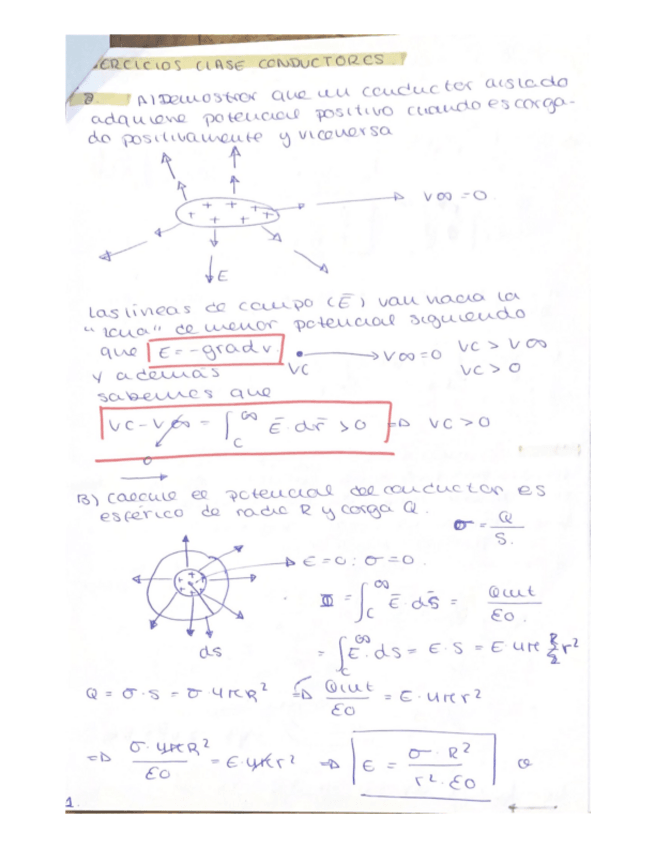 ERCICIOS CLASE CONDUCTORES.
2. A) Demostrar que un conductor aislado
adquiere potencial positivo cuando es carga-
do positivamente y viceversa
V∞ = 0
E
Las líneas de campo (Ē) van hacia la
de menor potencial siguiendo
que E = -grad V. VC V∞ = 0 VC > V∞
y además VC > 0
sabemos que
VC - V∞ = ∫_C^∞ Ē · dr̄ > 0 => VC > 0
0
B) Calcule el potencial del conductor es
esférico de radio R y carga Q.
σ = Q/S.
E = 0 : σ = 0.
Φ = ∫_C^∞ Ē · dS̄ = Qint/ε0.
dS
= ∫_C^∞ E · dS = E · S = E · 4π r²
Q = σ · S = σ · 4πR² => Qint/ε0 = E · 4πr²
=> σ · 4πR²/ε0 = E · 4πr² => E = σ · R²/r² · ε0
1.